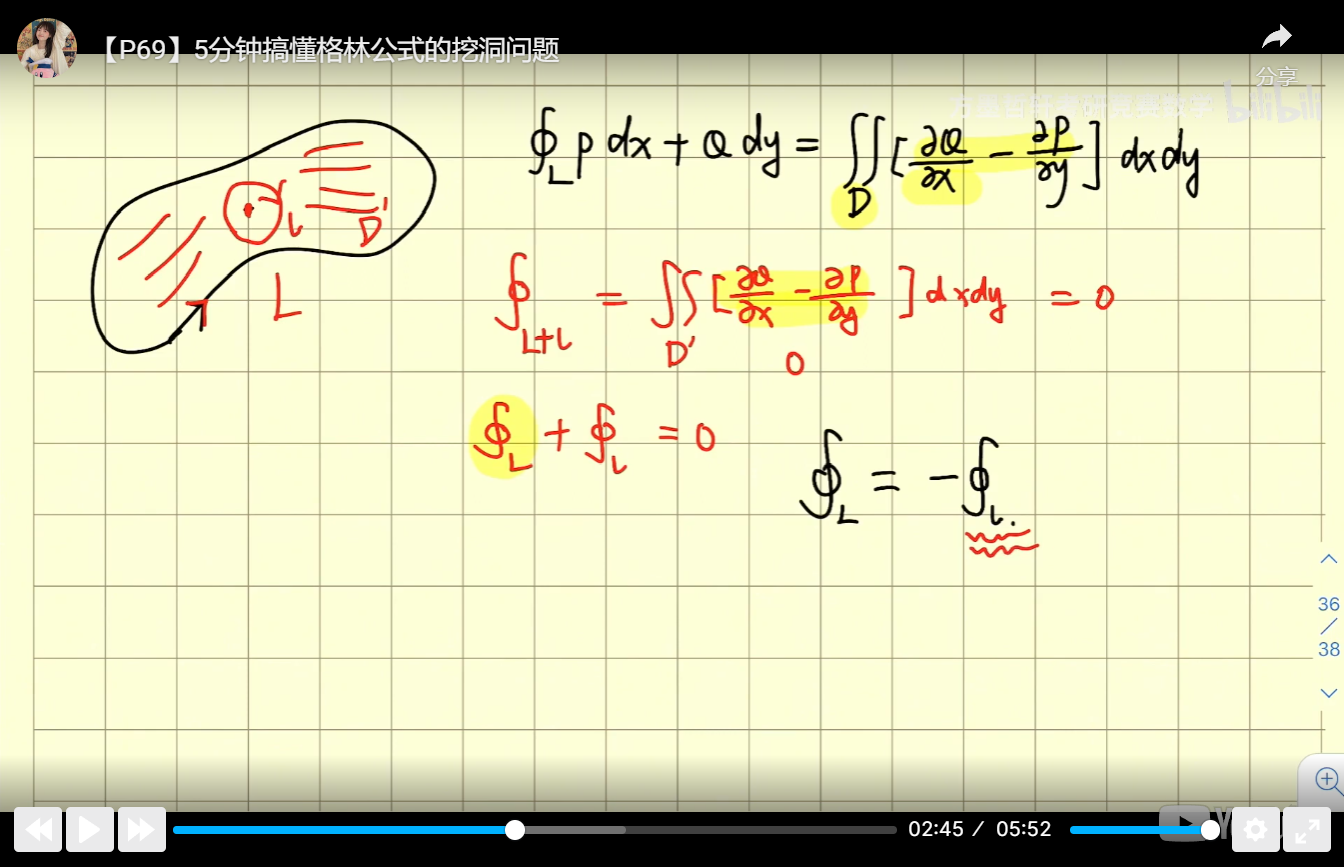 【P69】5分钟搞懂格林公式的挖洞问题
分享
bilibili
∮_L P dx + Q dy = ∬_D [∂Q/∂x − ∂P/∂y] dxdy
l
D'
L
∮_{L+l} = ∬_{D'} [∂Q/∂x − ∂P/∂y] dxdy = 0
0
∮_L + ∮_l = 0
∮_L = −∮_l.
36
/
38
02:45 / 05:52